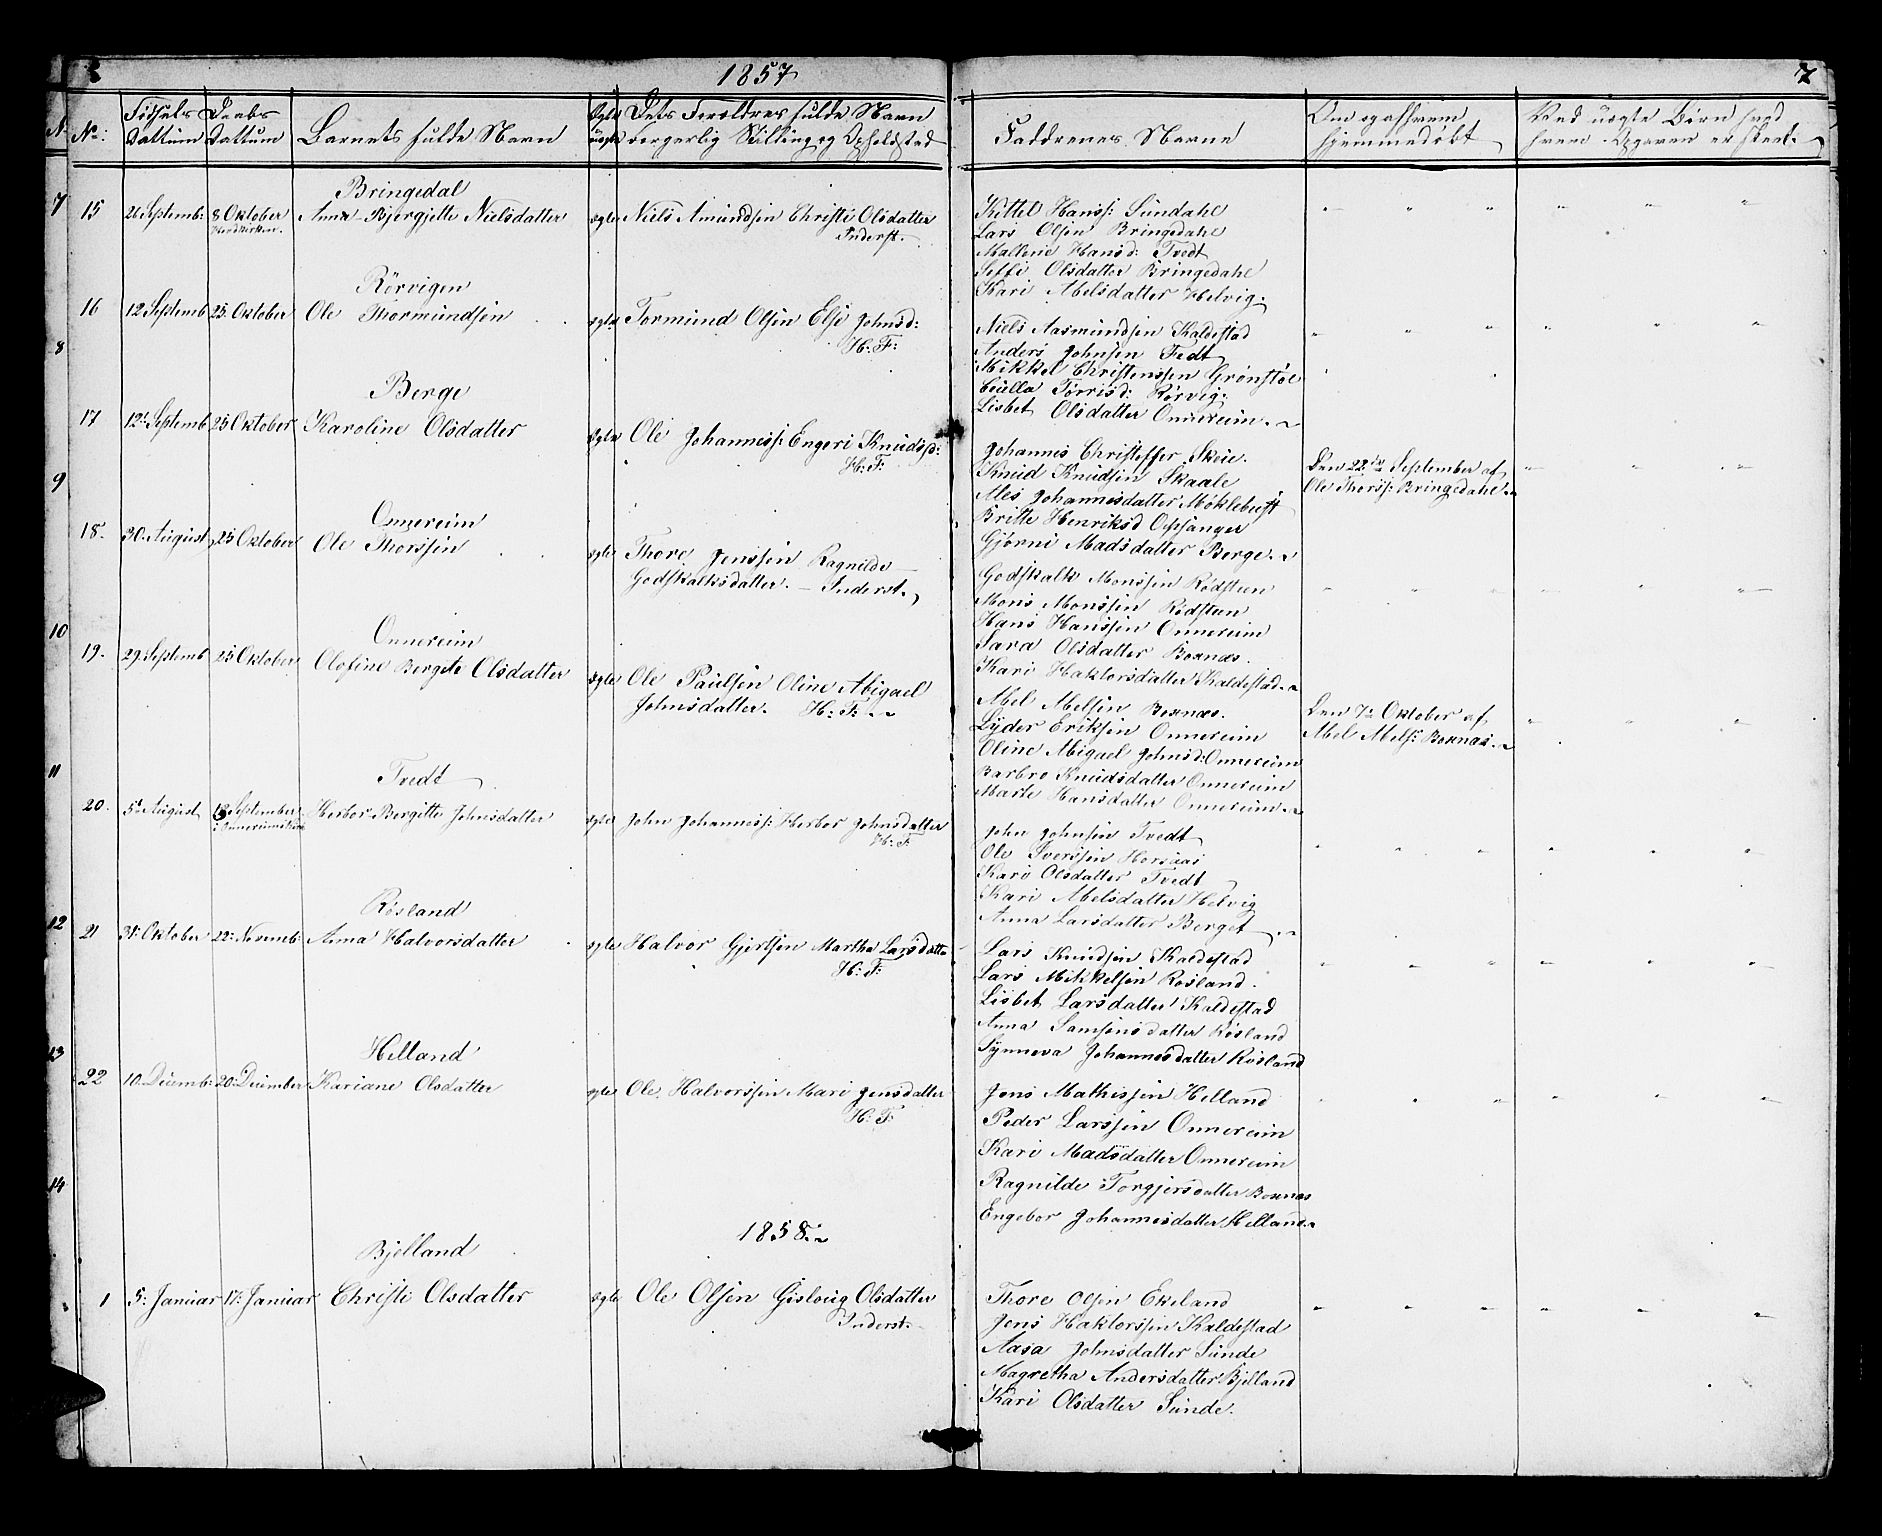 1857
7
No:
Fødsels Dattum
Daabs Dattum
Barnets fulde Navn
Ægte uægte
Dets Foreldres fulde Navn borgerlig Stilling og Opholdsted
Faddrenes Navne
Om og af hvem hjemmedøbt
Ved uægte Børn hvad hvem Opgaven er skeet.
7
Bringedal
15 26 Septemb: 8 Oktober Anna Bjergjette Nielsdatter ægte Niels Amundsen Christi Olsdatter
Inderst.
Kittel Hanss: Sundahl
Lars Olsen Bringedahl
Mallene Hansd: Tvedt
Seffi Olsdatter Bringedahl
Kari Abelsdatter Helvig.
Rørvigen
16 12 Septemb 25 Oktober Ole Thormundsen ægte Tormund Olsen Else Johnsd:
H: F:
Niels Aasmundsen Kaldestad
Anders Johnsen Tvedt
Mikkel Christenssen Grønstøl
Torrisd: Rørvig.
Lisbet Olsdatter Onnereim.
8
Berge
17 12: Septemb 25 Oktober Karoline Olsdatter ægte Ole Johanness: Engeri Knudsd:
H: F:
Johannes Christoffer Skeie.
Knud Knudsen Skaale
Ales Johannesdatter Møklebust
Britte Henriksd Opsanger
Gjørni Madsdatter Berge.
Den 22de September af
Ole Thorss: Bringedahl.
9
Onnereim
18. 30. August 25 Oktober Ole Thorssen ægte Thore Jenssen Ragnilde
Godskalksdatter. Inderst.
Godskalk Monssen Rødsteen
Mons Monssen Rødsteen
Hans Hanssen Onnereim
Sara Olsdatter Boxnæs.
Kari Haktorsdatter Kaldestad.
10
Onnereim
19. 29. Septemb 25 Oktober Olofine Bergite Olsdatter ægte Ole Paulsen Oline Abigael
Johnsdatter. H: F:
Abel Abelsen Boxnæs.
Lyder Eriksen Onnereim
Oline Abigael Johnsd: Onnereim
Barbro Knudsdatter Onnereim
Marte Hansdatter Onnereim.
Den 7de Oktober af
Abel Abels: Boxnæs.
11
Tvedt
20. 5te August 13 September Herbor Bergitte Johnsdatter ægte John Johanness: Herbor Johnsdatter
H: F
John Johnsen Tvedt
Ole Iverssen Horsaas
Kari Olsdatter Tvedt
Kari Abelsdatter Helvig
Anna Larsdatter Berget
12
Røsland
21 31: Oktober 22: Novemb: Anna Halvorsdatter ægte Halvor Gjertsen Martha Larsdatter
H: F:
Lars Knudsen Kaldestad
Lars Mikkelsen Røsland.
Lisbet Larsdatter Kaldestad
Anna Samsonsdatter Røsland
Synneva Johannesdatter Røsland
13
Helland
22 10. Decemb: 20: December Kariane Olsdatter ægte Ole Halvorssen Mari Jensdatter
H: F:
Jens Mathissen Helland
Peder Larssen Onnereim
Kari Madsdatter Onnereim
Ragnilde Torgjersdatter Boxnæs
Engebor Johannesdatter Helland.
14
1858.
Bjelland
1 5: Januar 17: Januar Christi Olsdatter ægte Ole Olsen Gisloug Olsdatter
Inderst.
Thore Olsen Ekeland
Jens Haktorssen Kaldestad
Aasa Johnsdatter Sunde
Magretha Andersdatter Bjelland
Kari Olsdatter Sunde.